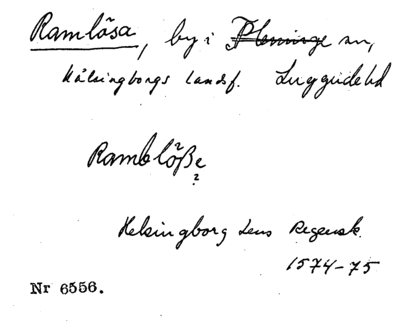 Ramlösa, by i Pleninge sn,
Hälsingborgs landsf. Luggude hd
Ramblöße
?
Helsingborg Lens Regensk.
1574-75
Nr 6556.